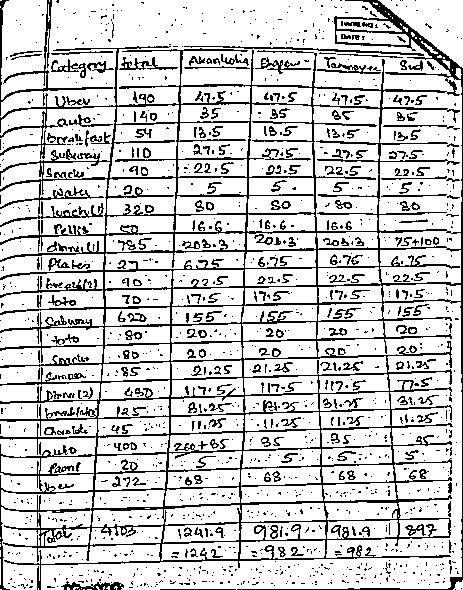 DATE:
Category total Akanksha Tanmayee Sud
Uber 190 47.5 47.5 47.5 47.5
auto 140 35 35 35 35
breakfast 54 13.5 13.5 13.5 13.5
Subway 110 27.5 27.5 27.5 27.5
Snacks 90 22.5 22.5 22.5 22.5
Water 20 5 5 5 5
lunch(1) 320 80 80 80 80
50 16.6 16.6 16.6 —
dinner(1) 785 203.3 203.3 203.3 75+100
Plates 27 6.75 6.75 6.75 6.75
break(2) 90 22.5 22.5 22.5 22.5
toto 70 17.5 17.5 17.5 17.5
Subway 620 155 155 155 155
toto 80 20 20 20 20
Snacks 80 20 20 20 20
Samosa 85 21.25 21.25 21.25 21.25
Dinner(2) 430 117.5 117.5 117.5 77.5
125 31.25 31.25 31.25 31.25
Chocolate 45 11.25 11.25 11.25 11.25
auto 400 260+35 35 35 35
20 5 5 5 5
Uber 272 68 68 68 68
Total 4103 1241.9 981.9 981.9 897
=1242 =982 =982